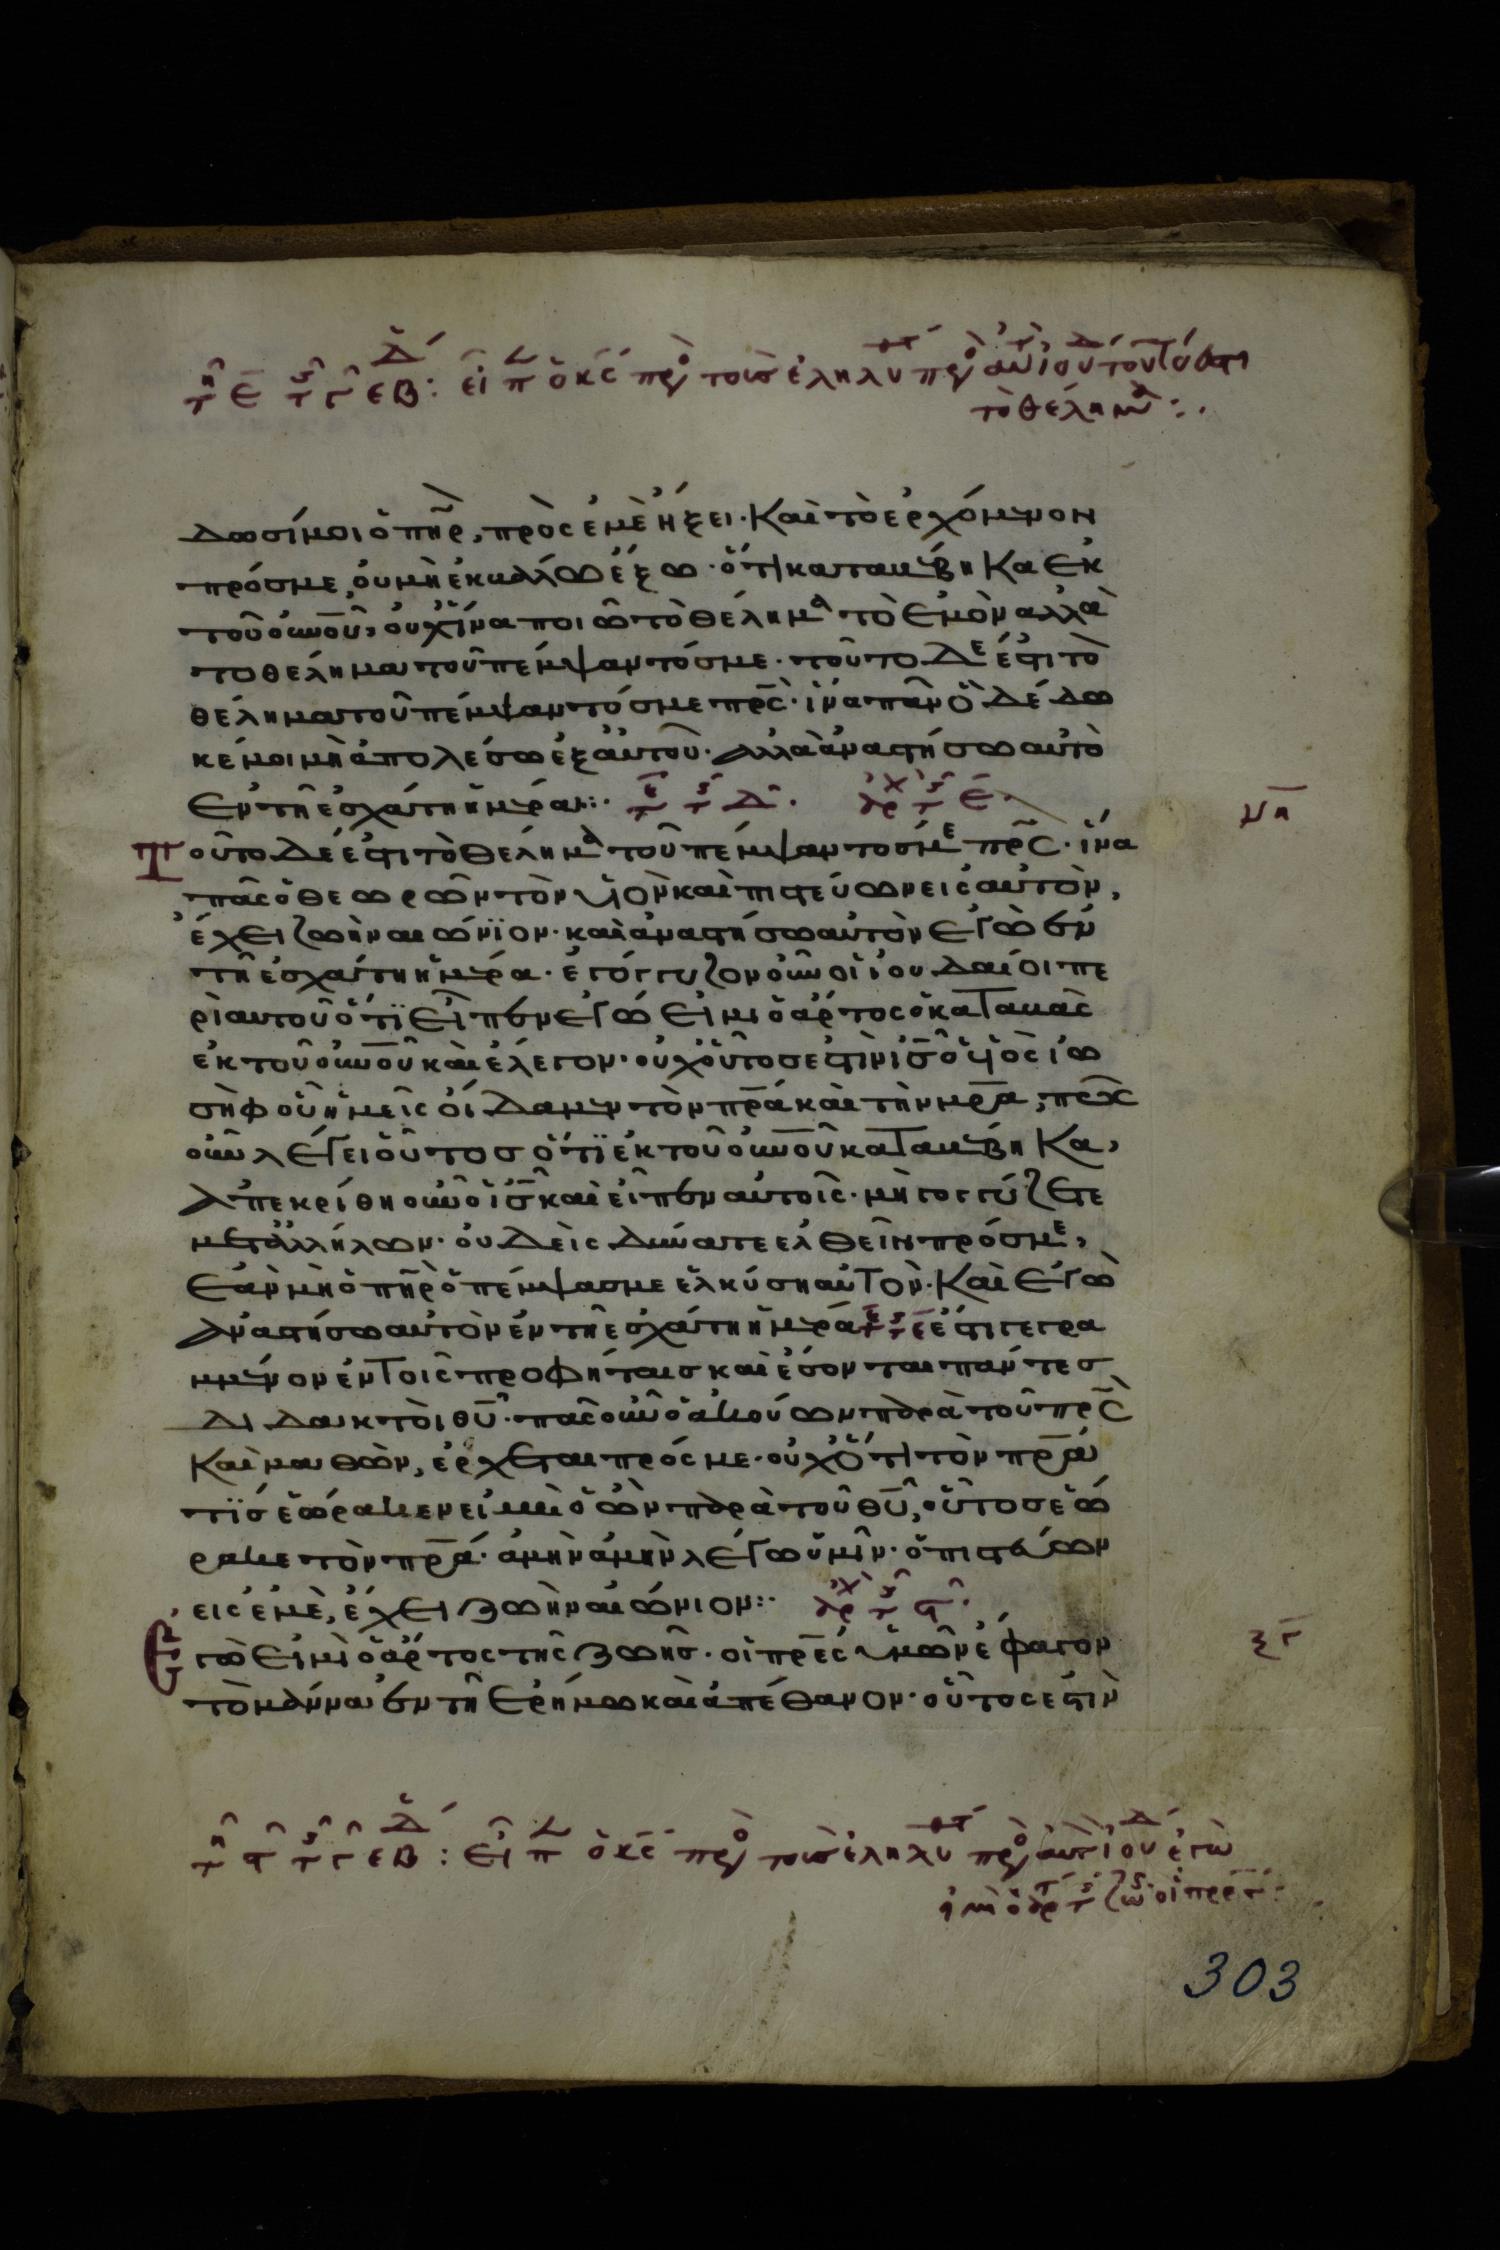 τῇ ε̄ τῆς γ̄ ἑβδ: εἶπ ὁ κς πρὸς τοὺς ἐληλυ πρὸς αὐτ ἰουδ τοῦτό ἐστι
τὸ θέλημα:.
δωσί μοι ὁ πηρ, πρὸς ἐμὲ ἥξει· Καὶ τὸ ἐρχόμενον
πρόσ με, οὐ μὴ ἐκβάλλω ἔξω· ὅτι καταβέβηκα ἐκ
τοῦ οὐνοῦ, οὐχ ἵνα ποιῶ τὸ θέλημα τὸ ἐμὸν ἀλλὰ
το θέλημα τοῦ πέμψαντόσ με· τοῦτο δέ ἐστι τὸ
θέλημα τοῦ πέμψαντόσ με πρς· ἵνα πᾶν ὃ δέδω
κέ μοι μὴ ἀπολέσω ἐξ αὐτοῦ· ἀλλὰ ἀναστήσω αὐτὸ
ἐν τῇ ἐσχάτῃ ἡμέρα:· τε τῆς δ. ἀρχ τῆς ε̄.
μη
Τοῦτο δέ ἐστι τὸ θέλημα τοῦ πέμψαντοσ με πρς· ἵνα
πᾶς ὁ θεωρῶν τὸν υἱὸν καὶ πιστεύων εἰς αὐτὸν,
ἔχει ζωὴν αἰώνϊον· καὶ ἀναστήσω αὐτὸν ἐγὼ ἐν
τῇ ἐσχάτῃ ἡμέρα· ἐγόγγυζον οὖν οἱ ἰουδαίοι πε
ρὶ αὐτοῦ ὅτϊ εἶπεν ἐγώ εἰμι ὁ ἄρτος ὁ καταβὰς
ἐκ τοῦ οὐνοῦ καὶ ἔλεγον· οὐχ οὗτοσ ἐστὶν ἰς ὁ υἱὸς ἰω
σὴφ οὗ ἡμεῖς οἴδαμεν τὸν πρα καὶ τὴν μρα; πῶς
οὖν λέγει οὗτοσ ὅτϊ ἐκ τοῦ οὐνοῦ καταβέβηκα,
Ἀπεκρίθη οὖν ὁ ἰς καὶ εἶπεν αὐτοῖς· μὴ γογγύζετε
μετ' ἀλλήλων· οὐδεὶς δύναται ἐλθεῖν πρόσ με,
ἐὰν μὴ ὁ πηρ ὁ πέμψασ με ἑλκύση αὐτὸν· Καὶ ἐγὼ
ἀναστήσω αὐτὸν ἐν τῇ ἐσχάτῃ ἡμέρα τε τῆς ε̄ ἔστι γεγρα
μμένον ἐν τοῖς προφήταισ καὶ ἔσονται πάντεσ
διδακτὸι θυ· πᾶς οὖν ὁ ἀκούων παρὰ τοῦ πρς
Καὶ μαθὼν, ἔρχεται πρός με· οὐχ ὅτι τὸν πρα
τϊσ ἑώρακεν εἰ μὴ ὁ ὢν παρὰ τοῦ θυ, οὗτοσ ἑώ
ρακε τὸν πρα· ἀμὴν ἀμὴν λέγω ὑμῖν· ὁ πιστεύων
εἰς ἐμὲ, ἔχει ζωὴν αἰώνιον:· ἀρχ τῆς ϛ.
ξγ
Ἐγὼ εἰμὶ ὁ ἄρτος τῆς ζωῆσ· οἱ πρες ὑμῶν ἔφαγον
τὸ μάννα ἐν τῇ ἐρήμω καὶ ἀπέθανον· οὗτος ἐστὶν
τῇ ϛ τῆς γ̄ ἑβδ: εἶπ ὁ κς πρὸς τοὺς ἐληλυ πρὸς αὐτ ἰουδ ἐγὼ
εἰμὶ ὁ ἄρτ τῆς ζω· οἱ πρες:
303